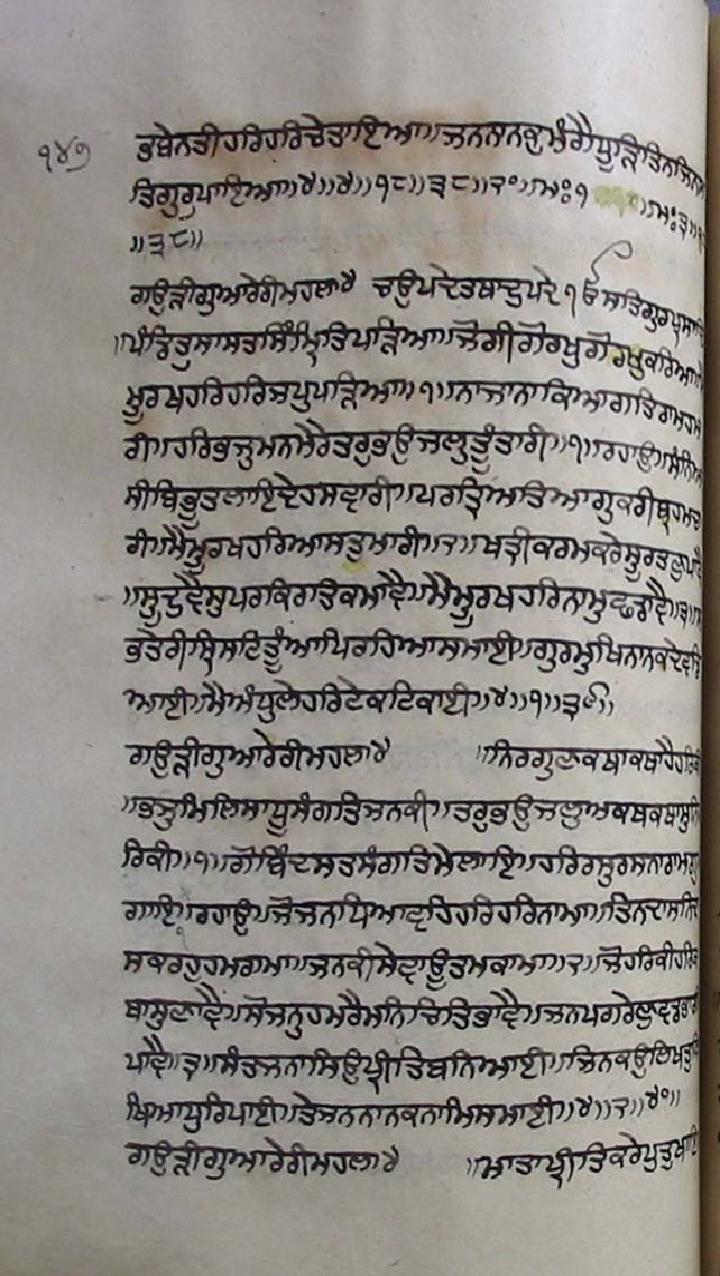 ੧੪੭
ਭਬੇਨਤੀਹਰਿਹਰਿਚੇਤਾਇਆ॥ਜਨਨਾਨਕੁਮੰਗੈਧੂੜਿਤਿਨ
ਤਿਗੁਰੁਪਾਇਆ॥੪॥੪॥੧੮॥੩੮॥੨੦॥ਮਃ੧ ॥ਮਃ੩॥
॥੩੮॥
ਗਉੜੀਗੁਆਰੇਰੀਮਹਲਾ੪ ਚਉਪਦੇਤਥਾਦੁਪਦੇ ੴਸਤਿਗੁਰਪ੍ਰਸਾਦਿ
॥ਪੰਡਿਤੁਸਾਸਤਸਿੰਮ੍ਰਿਤਿਪੜਿਆ॥ਜੋਗੀਗੋਰਖੁਗੋਰਖੁਕਰਿਆ
ਮੂਰਖਹਰਿਹਰਿਜਪੁਪੜਿਆ॥੧॥ਨਾਜਾਨਾਕਿਆਗਤਿਰਾਮਹਮ
ਰੀ॥ਹਰਿਭਜੁਮਨਮੇਰੈਤਰੁਭਉਜਲੁਤੂੰਤਾਰੀ॥੧॥ਰਹਾਉ॥ਸੰਨਿਆ
ਸੀਬਿਭੂਤਲਾਇਦੇਹਸਵਾਰੀ॥ਪਰਤ੍ਰਿਅਤਿਆਗੁਕਰੀਬ੍ਰਹਮਚ
ਰੀ॥ਮੈਮੂਰਖਹਰਿਆਸਤੁਮਾਰੀ॥੨॥ਖਤ੍ਰੀਕਰਮਕਰੇਸੂਰਤਣੁਪਾਵੈ
॥ਸੂਦੁਵੈਸੁਪਰਕਿਰਤਿਕਮਾਵੈ॥ਮੈਮੂਰਖਹਰਿਨਾਮੁਛਡਾਵੈ॥੩॥
ਭਤੇਰੀਸ੍ਰਿਸਟਿਤੂੰਆਪਿਰਹਿਆਸਮਾਈ॥ਗੁਰਮੁਖਿਨਾਨਕਦੇਵਡਿ
ਆਈ॥ਮੈਅੰਧੁਲੇਹਰਿਟੇਕਟਿਕਾਈ॥੪॥੧॥੩੯॥
ਗਉੜੀਗੁਆਰੇਰੀਮਹਲਾ੪ ॥ਨਿਰਗੁਣਕਥਾਕਥਾਹੈਹਰਿਕੀ
॥ਭਜੁਮਿਲਿਸਾਧੂਸੰਗਤਿਜਨਕੀ॥ਤਰੁਭਉਜਲੁਅਕਥਕਥਾਸੁਨਿ
ਰਿਕੀ॥੧॥ਗੋਬਿੰਦਸਤਸੰਗਤਿਮੇਲਾਇ॥ਹਰਿਰਸੁਰਸਨਾਰਾਮਗੁ
ਗਾਇ॥ਰਹਾਉ॥ਜੋਜਨਧਿਆਵਹਿਹਰਿਹਰਿਨਾਮਾ॥ਤਿਨਦਾਸਨਿਦਾ
ਸਕਰਹੁਹਮਰਾਮਾ॥ਜਨਕੀਸੇਵਾਊਤਮਕਾਮਾ॥੨॥ਜੋਹਰਿਕੀਹਰਿਕ
ਥਾਸੁਣਾਵੈ॥ਸੋਜਨੁਹਮਰੈਮਨਿਚਿਤਿਭਾਵੈ॥ਜਨਪਗਰੇਣੁਵਡਭਾਗੀ
ਪਾਵੈ॥੩॥ਸੰਤਜਨਾਸਿਉਪ੍ਰੀਤਿਬਨਿਆਈ॥ਜਿਨਕਉਲਿਖਤੁਲਿ
ਖਿਆਧੁਰਿਪਾਈ॥ਤੇਜਨਨਾਨਕਨਾਮਿਸਮਾਈ॥੪॥੨॥੪੦॥
ਗਉੜੀਗੁਆਰੇਰੀਮਹਲਾ੪ ॥ਮਾਤਾਪ੍ਰੀਤਿਕਰੇਪੁਤੁਖਾਇ